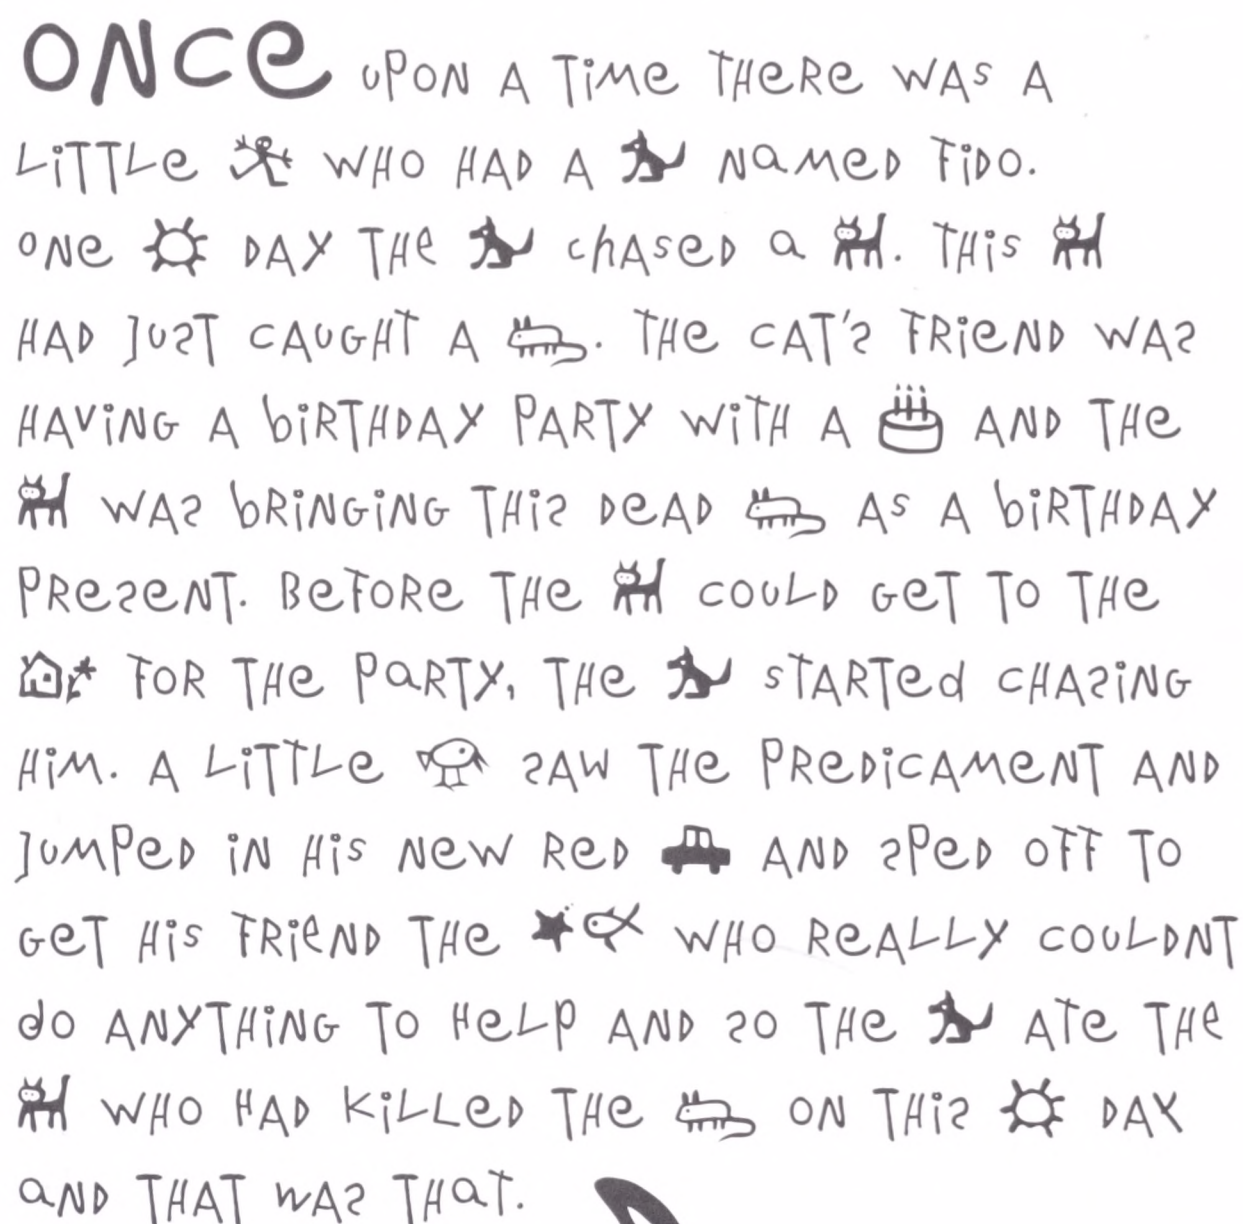 ONCE UPON A TIME THERE WAS A
LITTLE WHO HAD A NAMED FIDO.
ONE DAY THE CHASED A . THIS
HAD JUST CAUGHT A . THE CAT'S FRIEND WAS
HAVING A BIRTHDAY PARTY WITH A AND THE
WAS BRINGING THIS DEAD AS A BIRTHDAY
PRESENT. BEFORE THE COULD GET TO THE
FOR THE PARTY, THE STARTED CHASING
HIM. A LITTLE SAW THE PREDICAMENT AND
JUMPED IN HIS NEW RED AND SPED OFF TO
GET HIS FRIEND THE WHO REALLY COULDNT
DO ANYTHING TO HELP AND SO THE ATE THE
WHO HAD KILLED THE ON THIS DAY
AND THAT WAS THAT.